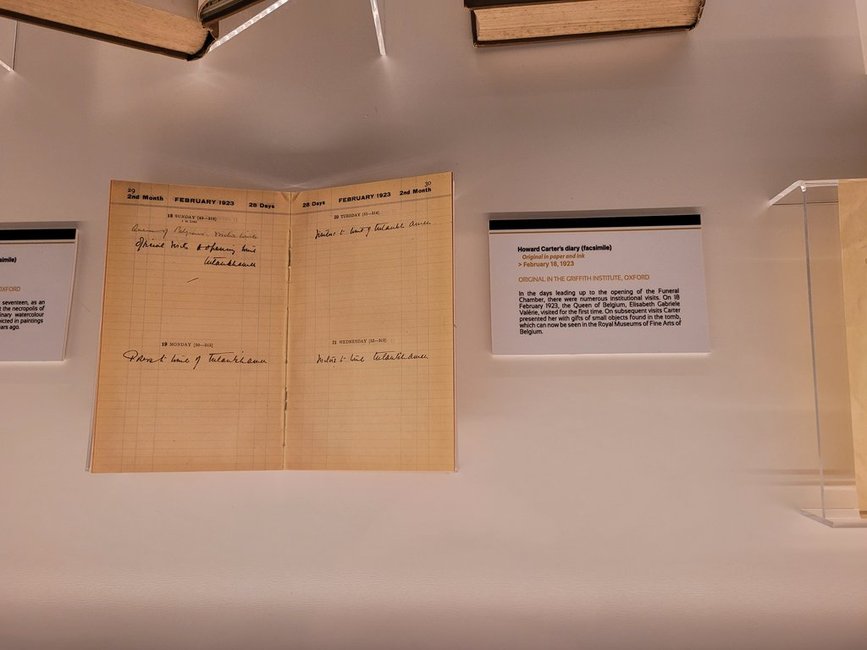 simile)
OXFORD
seventeen, as an
t the necropolis of
inary watercolour
picted in paintings
ears ago.
29
2nd Month FEBRUARY 1923 28 Days
18 SUNDAY [49—316]
Queen of Belgians
official visits & opening tomb
tutankhamen
19 MONDAY [50—315]
Press to tomb of Tutankhamen
30
28 Days FEBRUARY 1923 2nd Month
20 TUESDAY [51—314]
Visitors to tomb of Tutankhamen
21 WEDNESDAY [52—313]
Visitors to tomb Tutankhamen
Howard Carter's diary (facsimile)
Original in paper and ink
> February 18, 1923
ORIGINAL IN THE GRIFFITH INSTITUTE, OXFORD
In the days leading up to the opening of the Funeral
Chamber, there were numerous institutional visits. On 18
February 1923, the Queen of Belgium, Elisabeth Gabriele
Valérie, visited for the first time. On subsequent visits Carter
presented her with gifts of small objects found in the tomb,
which can now be seen in the Royal Museums of Fine Arts of
Belgium.